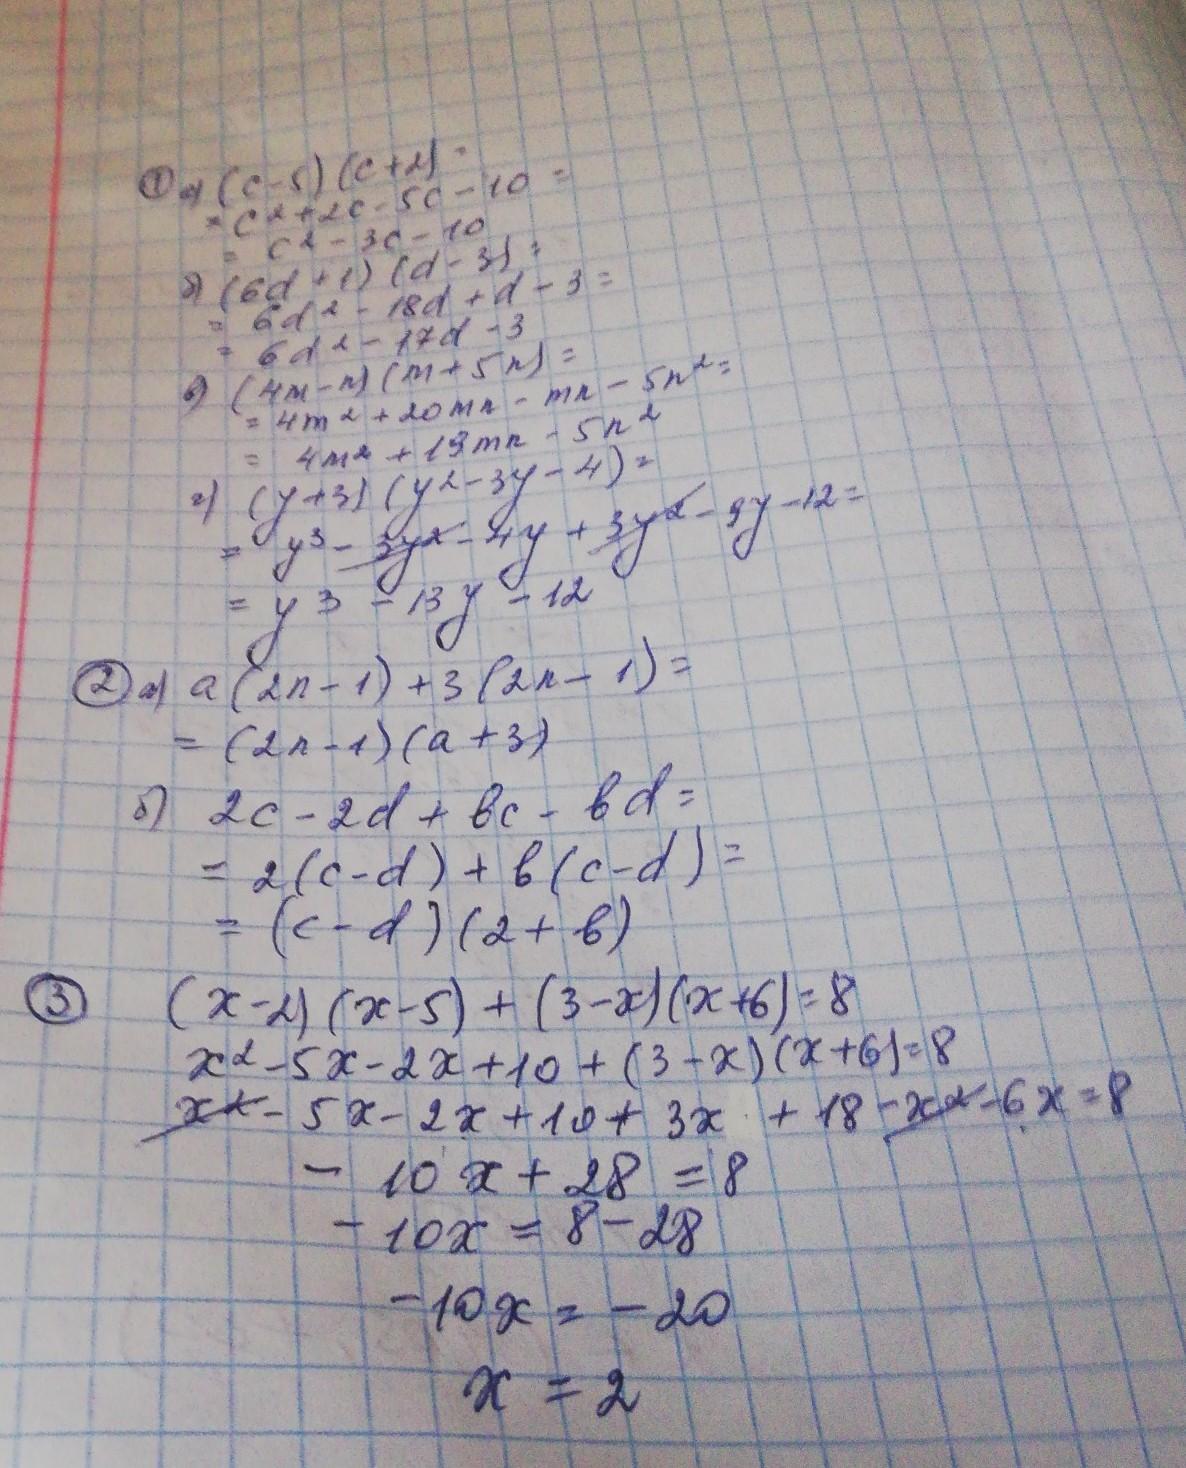 ① а) (c-5)(c+2) =
= c² + 2c - 5c - 10 =
= c² - 3c - 10
б) (6d + 1)(d - 3) =
= 6d² - 18d + d - 3 =
= 6d² - 17d - 3
в) (4m - n)(m + 5n) =
= 4m² + 20mn - mn - 5n² =
= 4m² + 19mn - 5n²
г) (y+3)(y² - 3y - 4) =
= y³ - 3y² - 4y + 3y² - 9y - 12 =
= y³ - 13y - 12
② а) a(2n - 1) + 3(2n - 1) =
= (2n - 1)(a + 3)
б) 2c - 2d + bc - bd =
= 2(c - d) + b(c - d) =
= (c - d)(2 + b)
③ (x-2)(x-5) + (3-x)(x+6) = 8
x² - 5x - 2x + 10 + (3 - x)(x + 6) = 8
x² - 5x - 2x + 10 + 3x + 18 - x² - 6x = 8
- 10x + 28 = 8
- 10x = 8 - 28
- 10x = - 20
x = 2